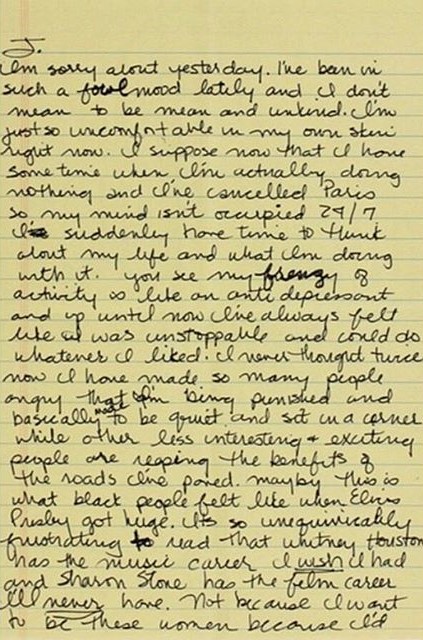 J.
I'm sorry about yesterday. I've been in
such a foul mood lately and I don't
mean to be mean and unkind. I'm
just so uncomfortable in my own skin
right now. I suppose now that I have
some time when I'm actually doing
nothing and I've cancelled Paris
so my mind isn't occupied 24/7
I suddenly have time to think
about my life and what I'm doing
with it. you see my frenzy of
activity is like an anti depressant
and up until now I've always felt
like I was unstoppable and could do
whatever I liked. I never thought twice
now I have made so many people
angry that I'm being punished and
basically made to be quiet and sit in a corner
while other less interesting + exciting
people are reaping the benefits of
the roads I've paved. mayby this is
what black people felt like when Elvis
Presley got huge. It's so unequivicably
frustrating to read that Whitney Houston
has the music career I wish I had
and Sharon Stone has the film career
I'll never have. Not because I want
to be these women because I'd